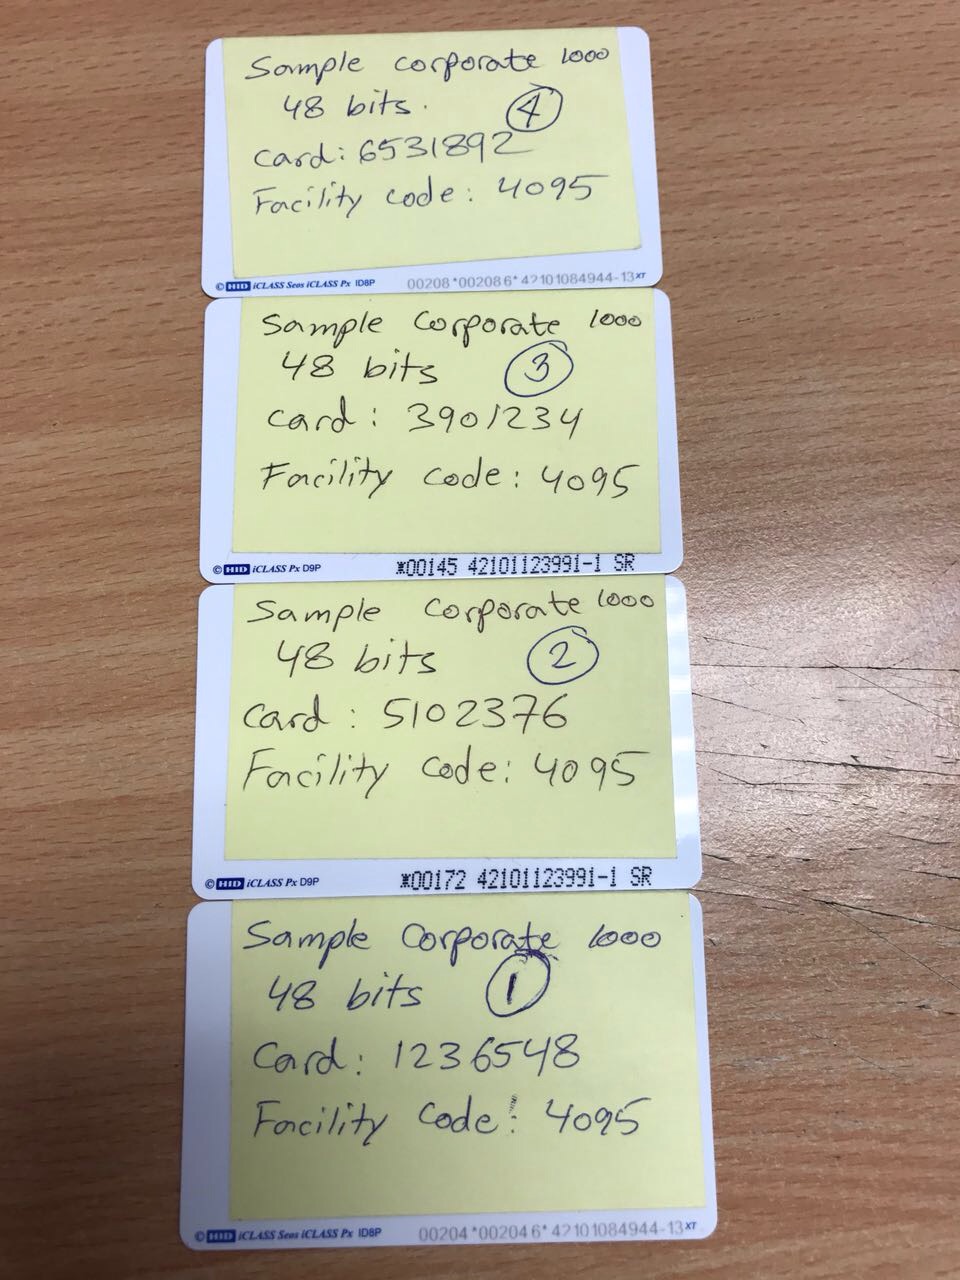 Sample corporate 1000
48 bits. 4
Card: 6531892
Facility code: 4095
© HID iCLASS Seos iCLASS Px ID8P 00208 *00208 6* 42101084944-13 XT
Sample Corporate 1000
48 bits 3
Card: 3901234
Facility code: 4095
© HID iCLASS Px D9P *00145 42101123991-1 SR
Sample Corporate 1000
48 bits 2
Card: 5102376
Facility code: 4095
© HID iCLASS Px D9P *00172 42101123991-1 SR
Sample Corporate 1000
48 bits 1
Card: 1236548
Facility Code: 4095
© HID iCLASS Seos iCLASS Px ID8P 00204 *00204 6* 42101084944-13 XT